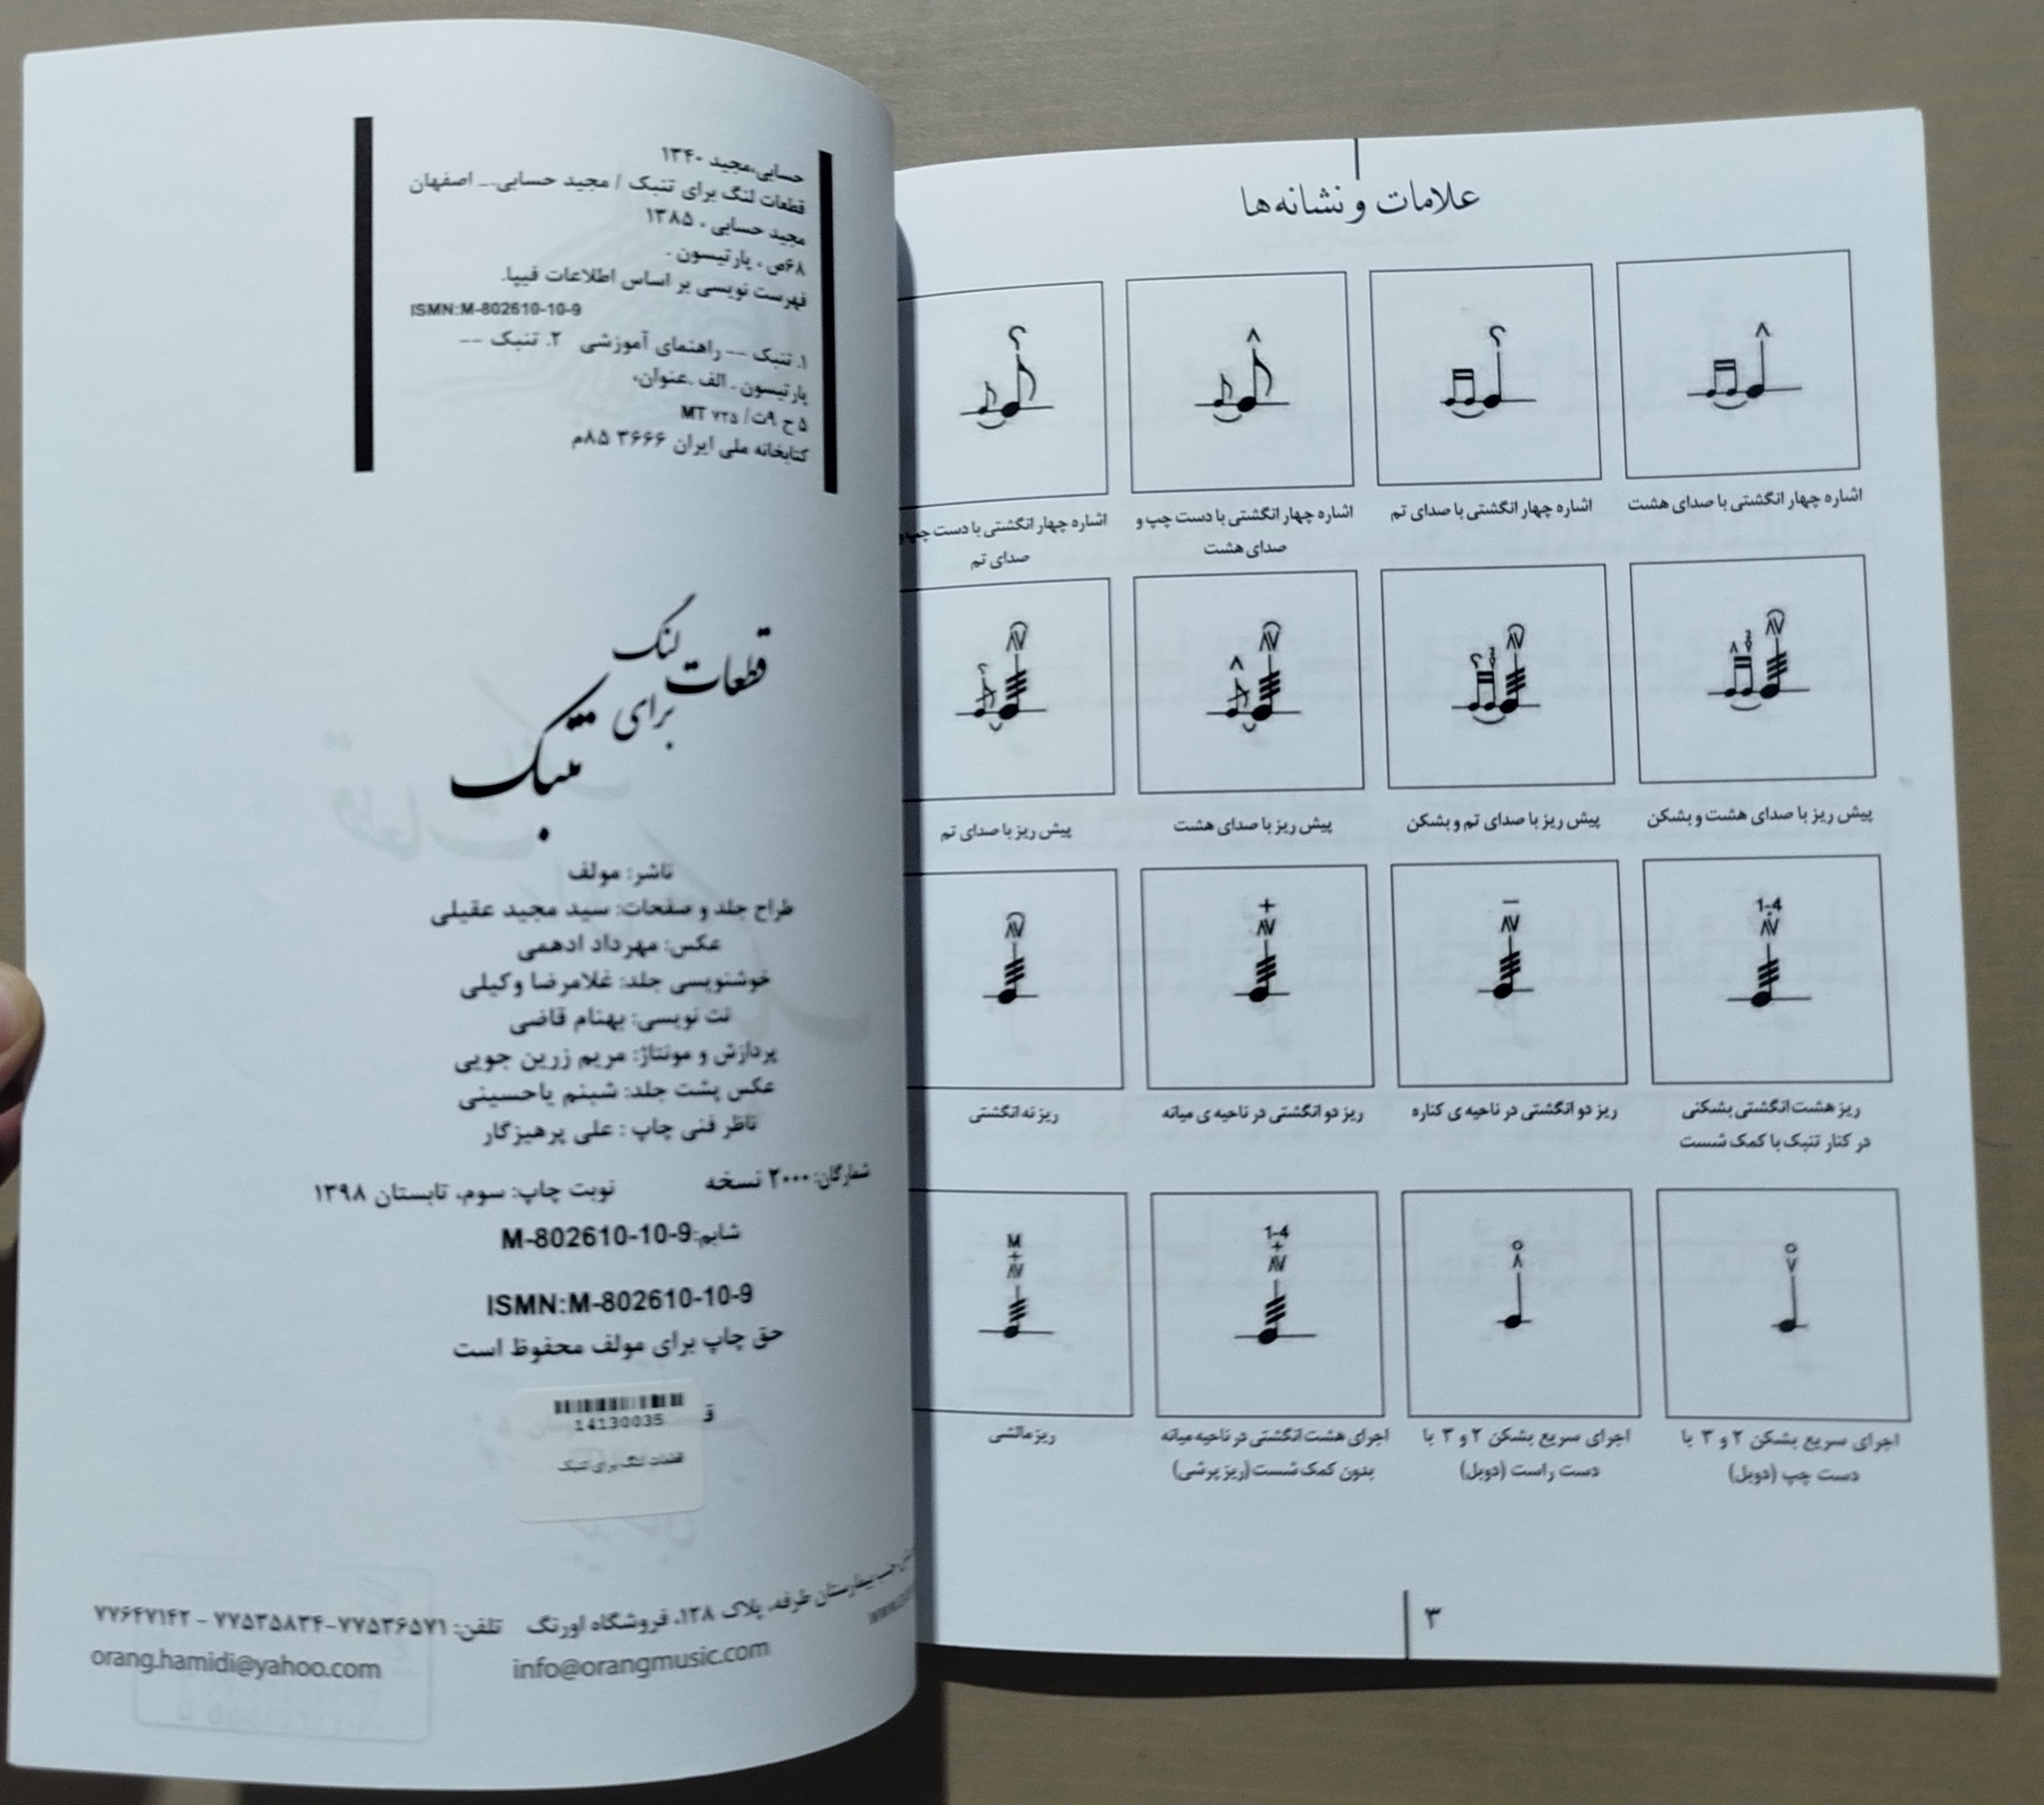 حسابی،مجید ۱۳۴۰
قطعات لنگ برای تنبک / مجید حسابی._ اصفهان
مجید حسابی ، ۱۳۸۵
۶۸ص ، پارتیسون .
فهرست نویسی بر اساس اطلاعات فیپا.
ISMN:M-802610-10-9
۱. تنبک -- راهنمای آموزشی ۲. تنبک --
پارتیسون . الف .عنوان.
۵ ح ۹ت/ MT ۷۲۵
کتابخانه ملی ایران ۳۶۶۶ ۸۵م
قطعات لنگ
برای
تنبک
ناشر: مولف
طراح جلد و صفحات: سید مجید عقیلی
عکس: مهرداد ادهمی
خوشنویسی جلد: غلامرضا وکیلی
نت نویسی: بهنام قاضی
پردازش و مونتاژ: مریم زرین جویی
عکس پشت جلد: شبنم یاحسینی
ناظر فنی چاپ : علی پرهیزگار
شمارگان: ۲۰۰۰ نسخه نوبت چاپ: سوم، تابستان ۱۳۹۸
شابم: M-802610-10-9
ISMN:M-802610-10-9
حق چاپ برای مولف محفوظ است
14130035
قطعات لنگ برای تنبک
جنب بیمارستان طرفه، پلاک ۱۲۸، فروشگاه اورنگ تلفن: ۷۷۵۳۶۵۷۱-۷۷۵۳۵۸۳۴ - ۷۷۶۴۷۱۴۲
info@orangmusic.com orang.hamidi@yahoo.com
علامات و نشانه‌ها
اشاره چهار انگشتی با صدای هشت
اشاره چهار انگشتی با صدای تم
اشاره چهار انگشتی با دست چپ و
صدای هشت
اشاره چهار انگشتی با دست چپ و
صدای تم
پیش ریز با صدای هشت و بشکن
پیش ریز با صدای تم و بشکن
پیش ریز با صدای هشت
پیش ریز با صدای تم
1-4
+
ریز هشت انگشتی بشکنی
در کنار تنبک با کمک شست
ریز دو انگشتی در ناحیه ی کناره
ریز دو انگشتی در ناحیه ی میانه
ریز نه انگشتی
1-4
+
M
+
اجرای سریع بشکن ۲ و ۳ با
دست چپ (دوبل)
اجرای سریع بشکن ۲ و ۳ با
دست راست (دوبل)
اجرای هشت انگشتی در ناحیه میانه
بدون کمک شست (ریز پرشی)
ریز مالشی
۳